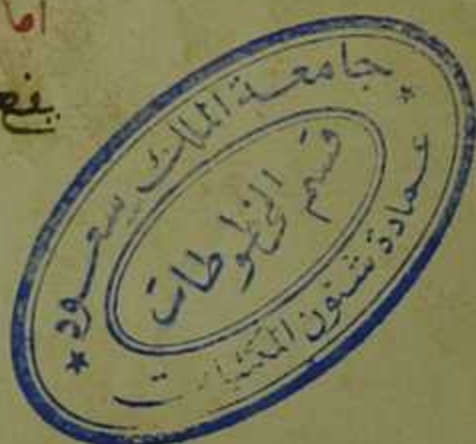 اما
يفع
جامعة الملك سعود
قسم المخطوطات
عمادة شئون المكتبات